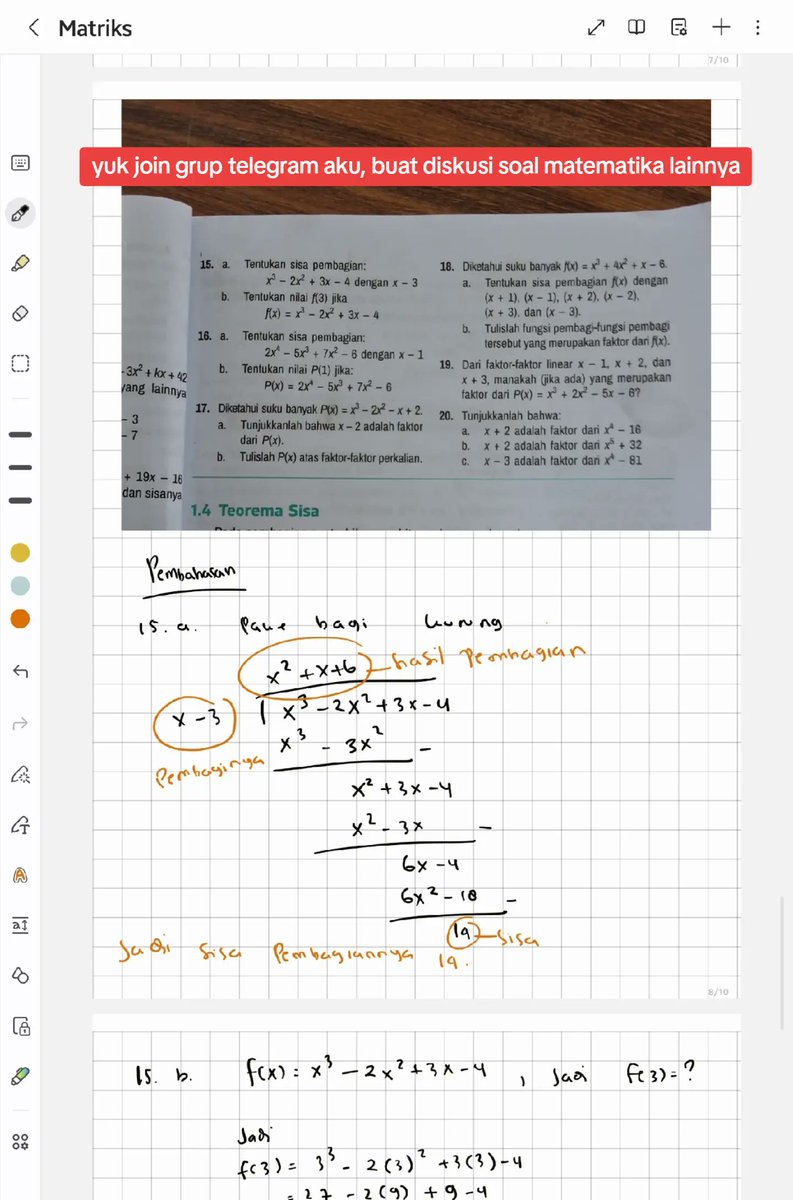 Matriks
7/10
yuk join grup telegram aku, buat diskusi soal matematika lainnya
- 3x² + kx + 42
yang lainnya
- 3
- 7
+ 19x - 16
dan sisanya
15. a. Tentukan sisa pembagian:
x³ - 2x² + 3x - 4 dengan x - 3
b. Tentukan nilai f(3) jika
f(x) = x³ - 2x² + 3x - 4
16. a. Tentukan sisa pembagian:
2x⁴ - 5x³ + 7x² - 6 dengan x - 1
b. Tentukan nilai P(1) jika:
P(x) = 2x⁴ - 5x³ + 7x² - 6
17. Diketahui suku banyak P(x) = x³ - 2x² - x + 2.
a. Tunjukkanlah bahwa x - 2 adalah faktor
dari P(x).
b. Tulislah P(x) atas faktor-faktor perkalian.
18. Diketahui suku banyak f(x) = x³ + 4x² + x - 6.
a. Tentukan sisa pembagian f(x) dengan
(x + 1), (x - 1), (x + 2), (x - 2),
(x + 3), dan (x - 3).
b. Tulislah fungsi pembagi-fungsi pembagi
tersebut yang merupakan faktor dari f(x).
19. Dari faktor-faktor linear x - 1, x + 2, dan
x + 3, manakah (jika ada) yang merupakan
faktor dari P(x) = x³ + 2x² - 5x - 6?
20. Tunjukkanlah bahwa:
a. x + 2 adalah faktor dari x⁴ - 16
b. x + 2 adalah faktor dari x⁵ + 32
c. x - 3 adalah faktor dari x⁴ - 81
1.4 Teorema Sisa
Pembahasan
15. a. Pake bagi kurung
x² + x + 6 hasil pembagian
x - 3 x³ - 2x² + 3x - 4
x³ - 3x² -
Pembaginya
x² + 3x - 4
x² - 3x -
6x - 4
6x² - 18 -
19 sisa
Jadi sisa Pembagiannya 19.
8/10
15. b. f(x) = x³ - 2x² + 3x - 4, Jadi f(3) = ?
Jadi
f(3) = 3³ - 2(3)² + 3(3) - 4
= 27 - 2(9) + 9 - 4